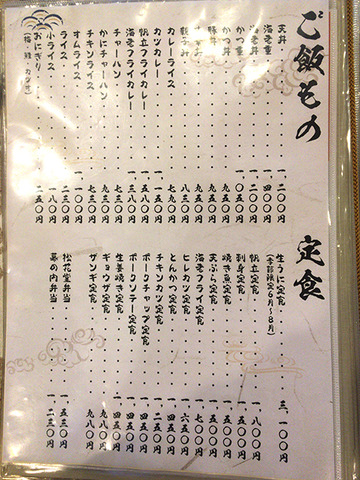 ご飯もの
天丼・・・一、二〇〇円
海老重・・・一、四〇〇円
かつ重・・・一、〇五〇円
かつ丼・・・九五〇円
豚丼・・・九五〇円
親子丼
カレーライス・・・七九〇円
カツカレー
帆立フライカレー・・・一、五八〇円
海老フライカレー・・・一、三八〇円
チャーハン・・・七三〇円
かにチャーハン
チキンライス・・・七三〇円
オムライス・・・一、一〇〇円
ライス・・・二三〇円
小ライス
おにぎり・・・二五〇円
定食
生うに定食・・・三、一〇〇円
(季節限定6月〜8月)
帆立定食・・・一、八〇〇円
刺身定食・・・一、五〇〇円
焼き魚定食・・・一、五〇〇円
天ぷら定食・・・一、五〇〇円
海老フライ定食・・・一、七〇〇円
ヒレカツ定食・・・一、六五〇円
とんかつ定食・・・一、四五〇円
チキンカツ定食・・・一、二五〇円
ポークチャップ定食・・・一、四五〇円
ポークソテー定食・・・一、四五〇円
生姜焼き定食・・・一、四五〇円
ギョウザ定食・・・九八〇円
ザンギ定食・・・九八〇円
松花堂弁当・・・一、五三〇円
幕の内弁当